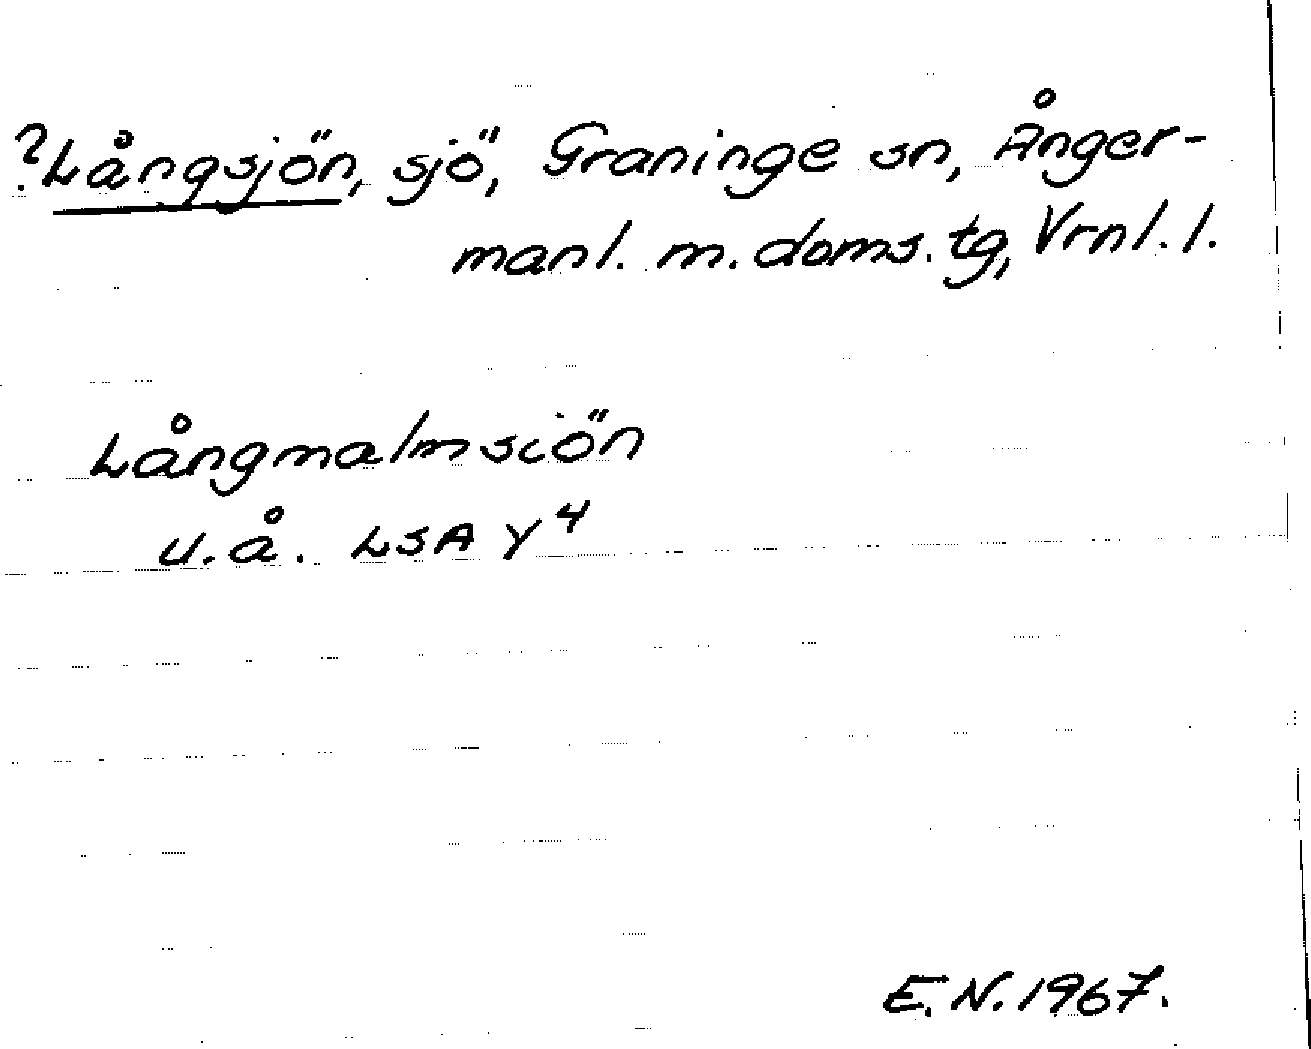 ?Långsjön, sjö, Graninge sn, Ånger-
manl. m. doms. tg, Vrnl. l.
Långmalmsiön
u.å. LSA Y⁴
E.N. 1967.